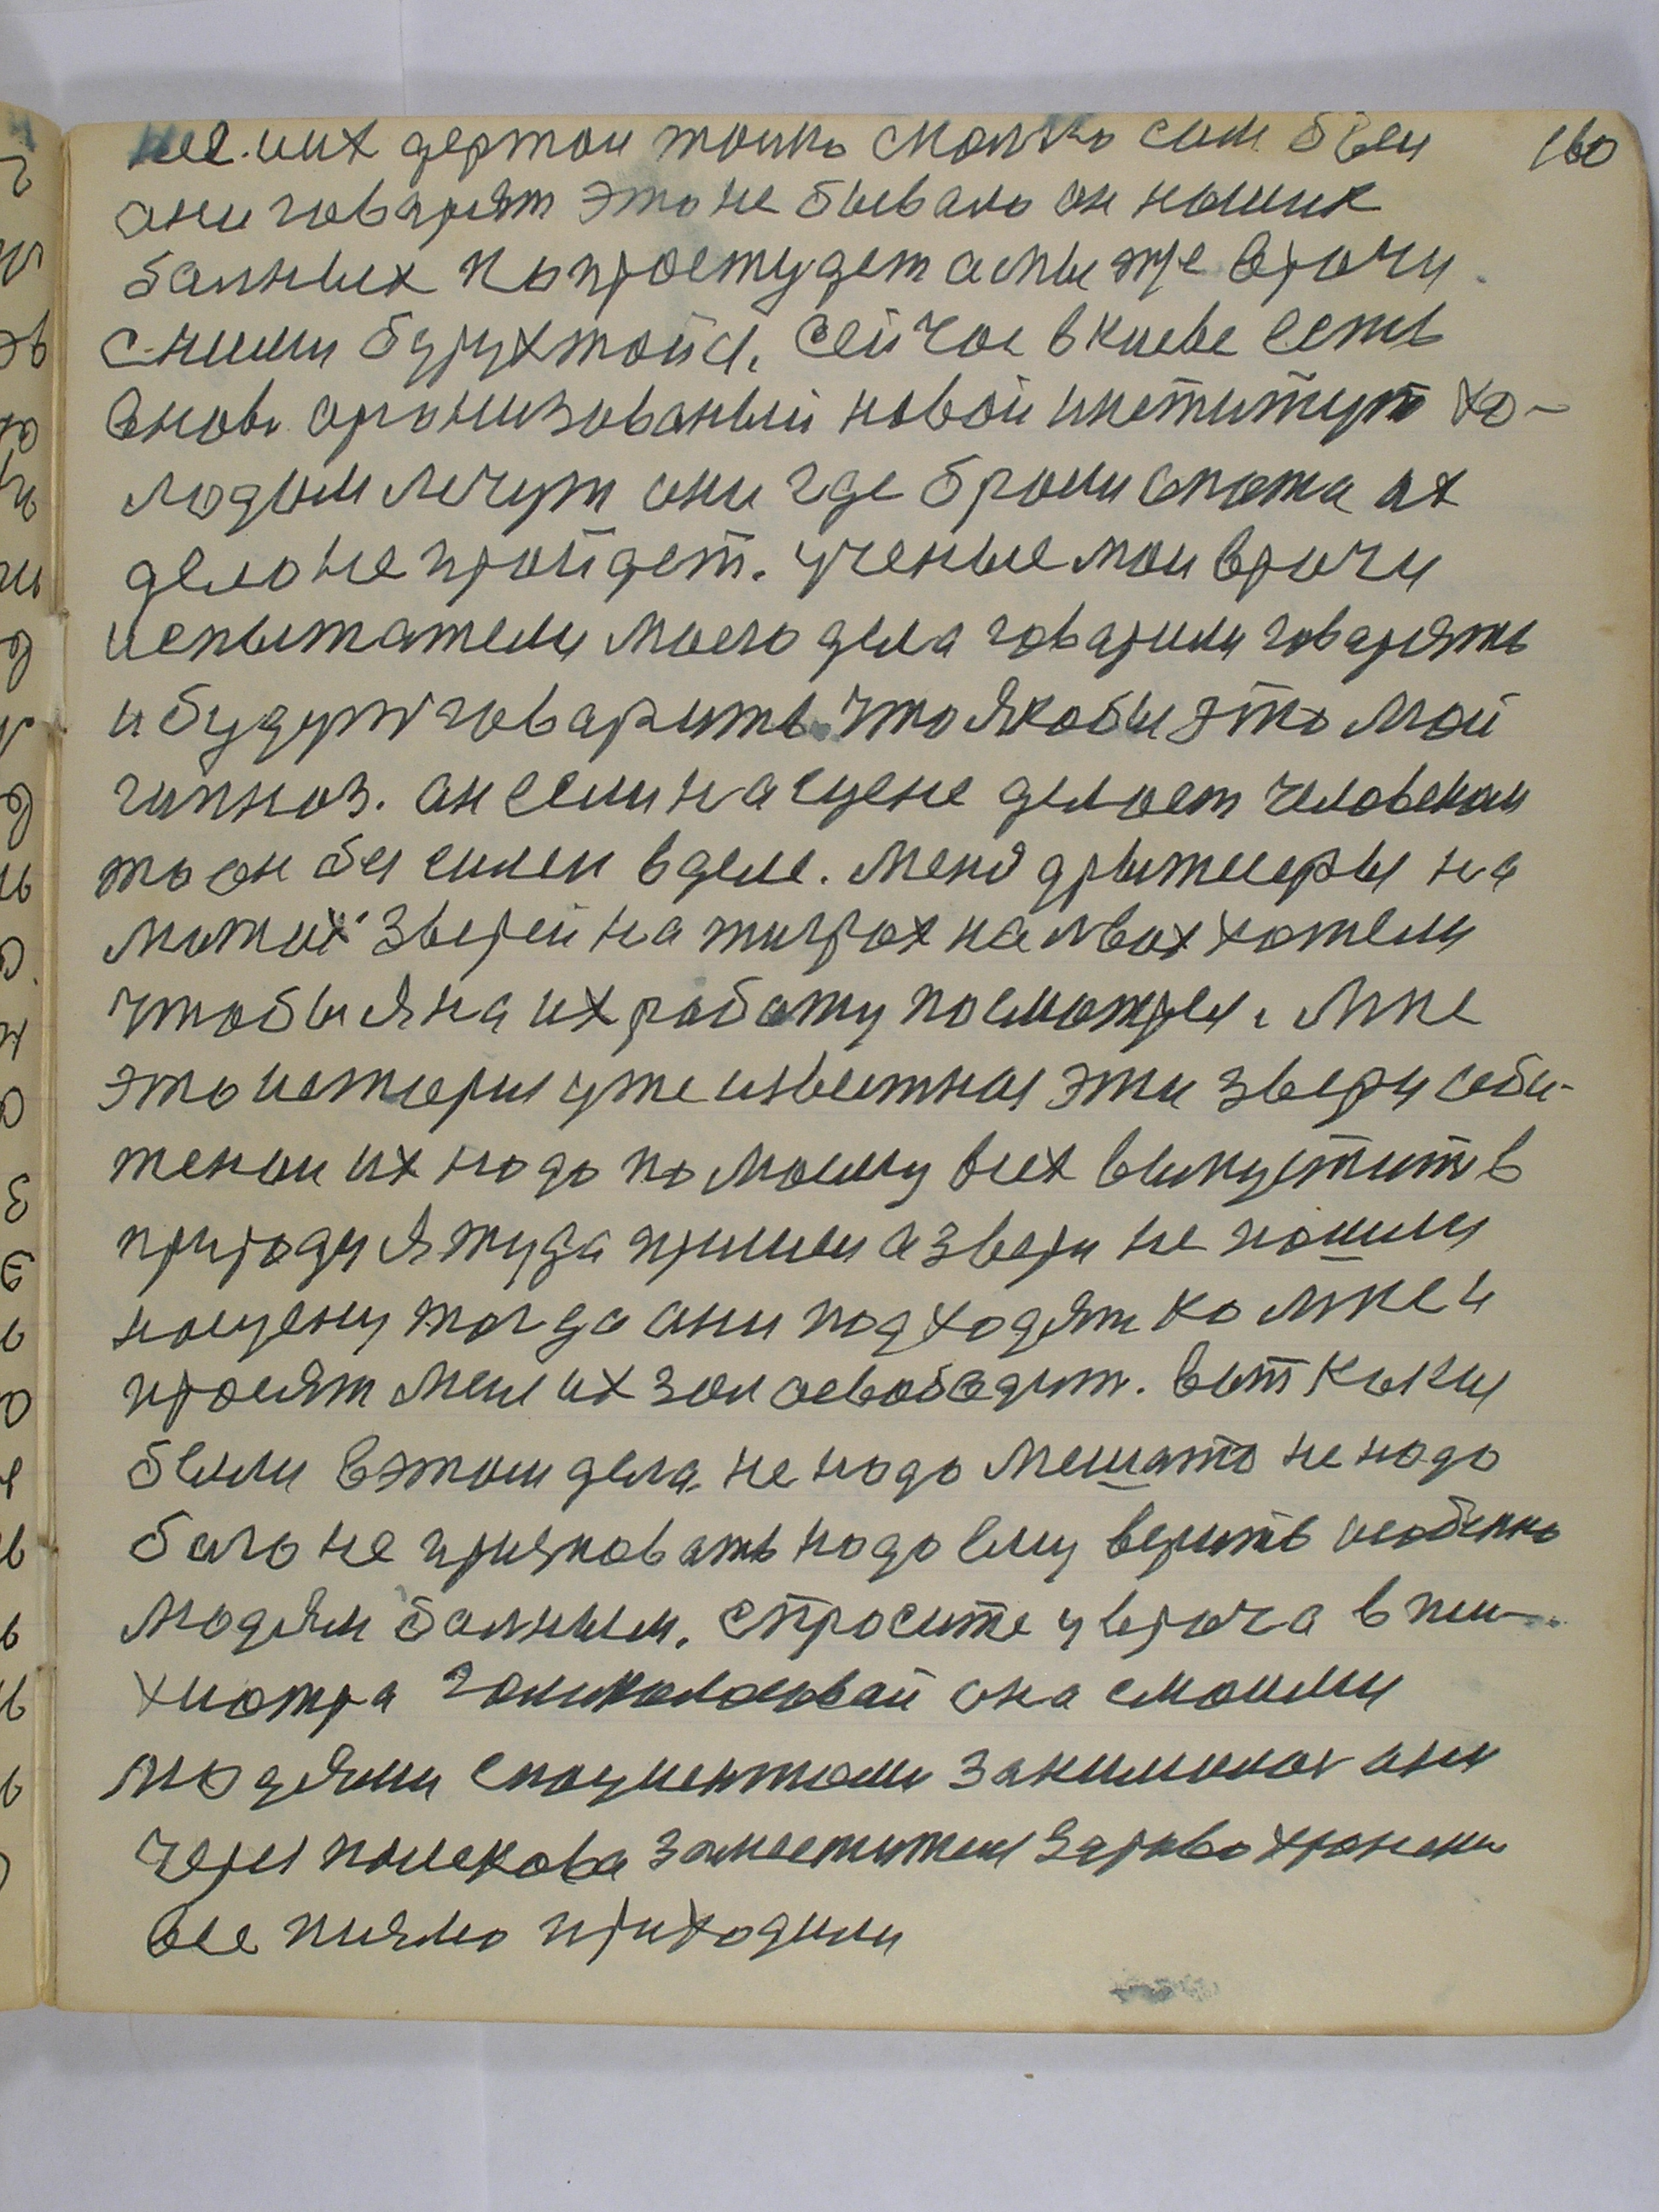 160
них держал только сколко сам был
они говарят это не бывало он наших
балных попростудет а мы же врачи
с ними бурухтайся. Сейчас в киеве есть
вновь организованый новой институт хо-
лодом лечут они где брали опота их
дело не пройдет. ученые мои врачи
испытатели моего дела говарили говарять
и будут говарить что якобы это мой
гипноз. он если на сцене делает человеком
то он бессилен в деле. меня дрытшеры на
мотах зверей на тиграх на львах хотели
чтобы я на их работу посмотрел. Мне
это история уже известная эти звери оби-
жении их надо по моему всех выпустить в
природу я туда пришел а звери не пошли
на сцену тогда они подходят ко мне и
просят меня их зол освободит. вот какии
были в этом дела. не надо мешать не надо
бало не приковать надо ему верить особенно
людям балным. Спросите у врача в пси-
хиатра она с моими
людями с пациентами занималас они
через полякова заместителя
все прямо приходили